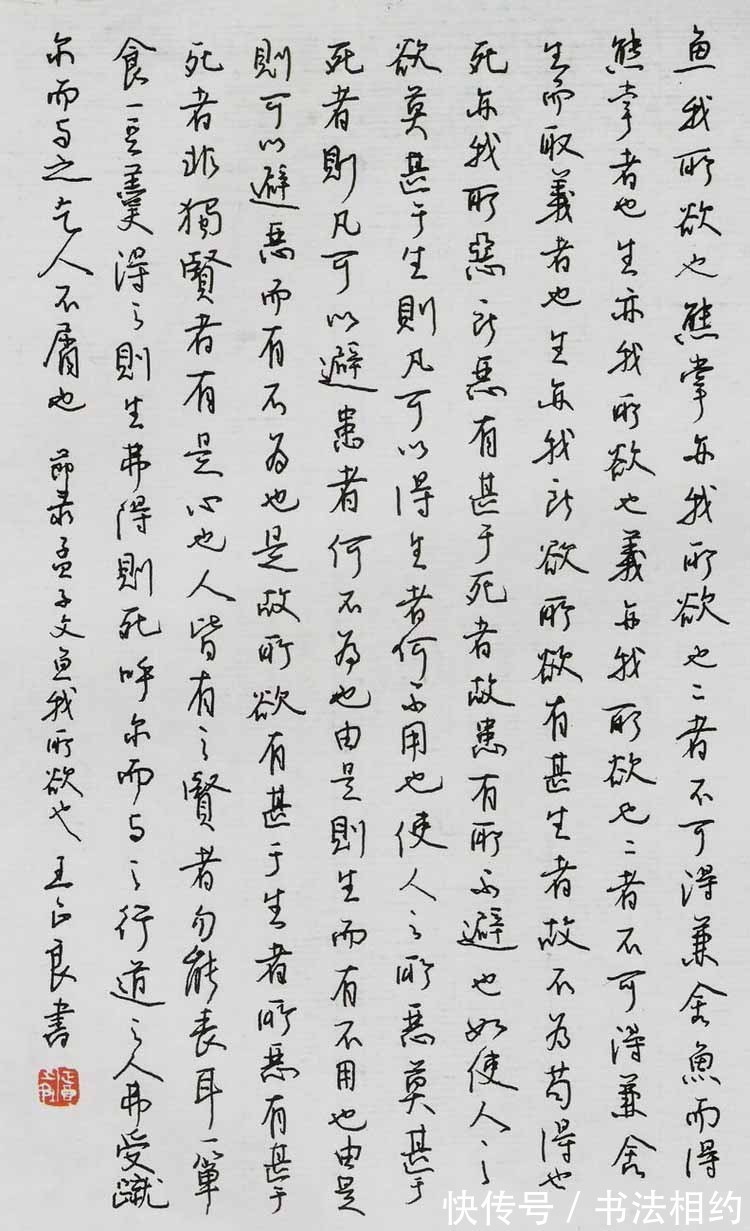 魚我所欲也熊掌亦我所欲也二者不可得兼舍魚而得
熊掌者也生亦我所欲也義亦我所欲也二者不可得兼舍
生而取義者也生亦我所欲所欲有甚生者故不為苟得也
死亦我所惡所惡有甚于死者故患有所不避也如使人之
欲莫甚于生則凡可以得生者何不用也使人之所惡莫甚于
死者則凡可以避患者何不為也由是則生而有不用也由是
則可以避惡而有不為也是故所欲有甚于生者所惡有甚于
死者非獨賢者有是心也人皆有之賢者勿能喪耳一簞
食一豆羹得之則生弗得則死呼尔而与之行道之人弗受蹴
尔而与之乞人不屑也 節录孟子文魚我所欲也 王正良書
快传号 / 书法相约